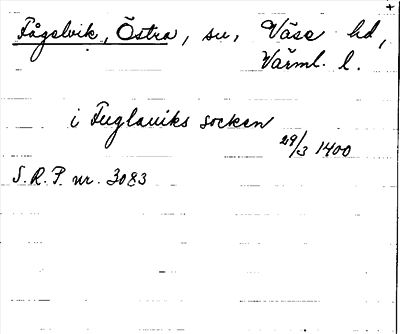 +
Fågelvik, Östra, sn, Väse hd,
Värml. l.
i Fuglauiks socken
29/3 1400
S.R.P. nr. 3083